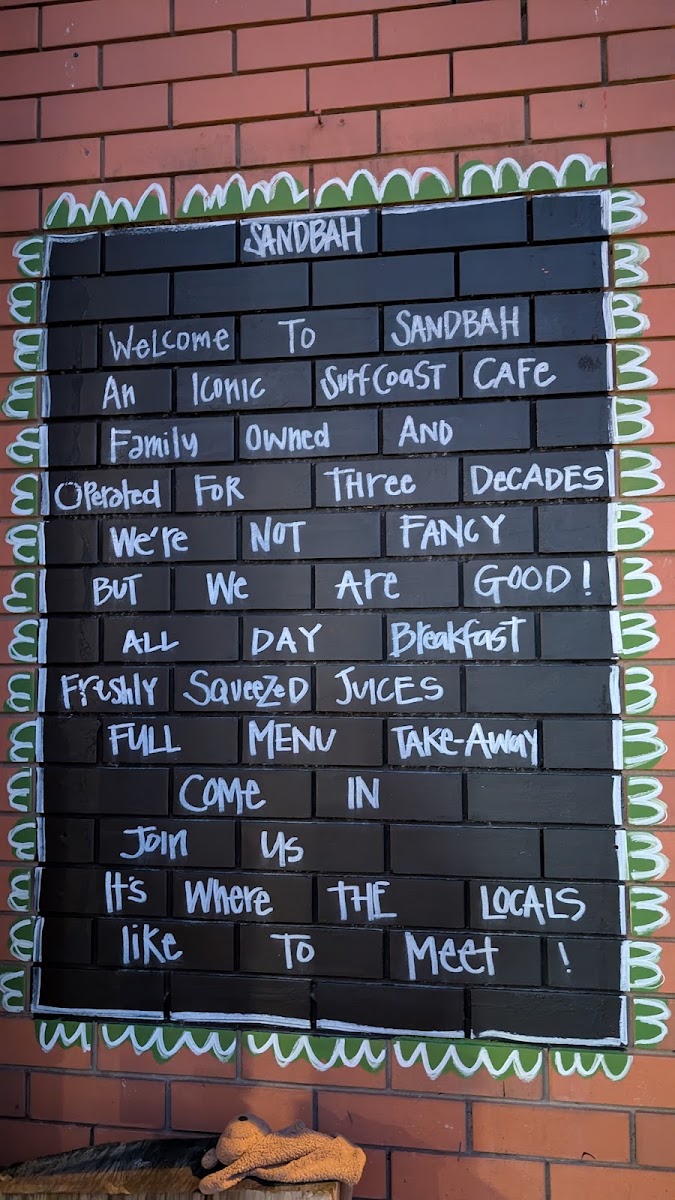 SANDBAH
WeLcome To SANDBAH
An Iconic SurfCoaST CAFe
Family Owned AND
Operated FoR THree DeCADES
We're NOT FANCY
BUT We Are GOOD!
ALL DAY Breakfast
FreshlY SqueeZeD JUICES
FULL MENU TAKE-AWay
Come IN
JoIn us
It's Where THE LOCALS
like To Meet !